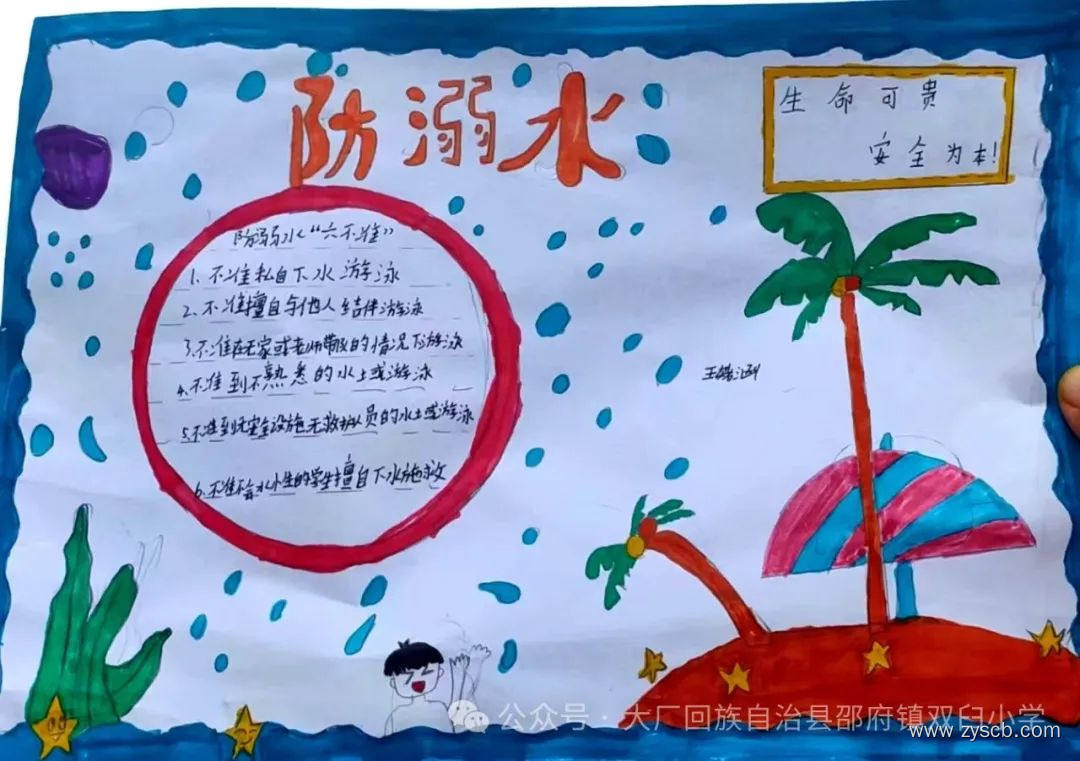 防溺水
生命可贵
安全为本!
防溺水“六不准”
1.不准私自下水游泳
2.不准擅自与他人结伴游泳
3.不准在无家或老师带的情况下游泳
4.不准到不熟悉的水土或游泳
5.不准到无安全设施无救护人员的水土或游泳
6.不准不会水小生的学生擅自下水施救
公众号·大厂回族自治县邵府镇双臼小学
www.zyscb.com